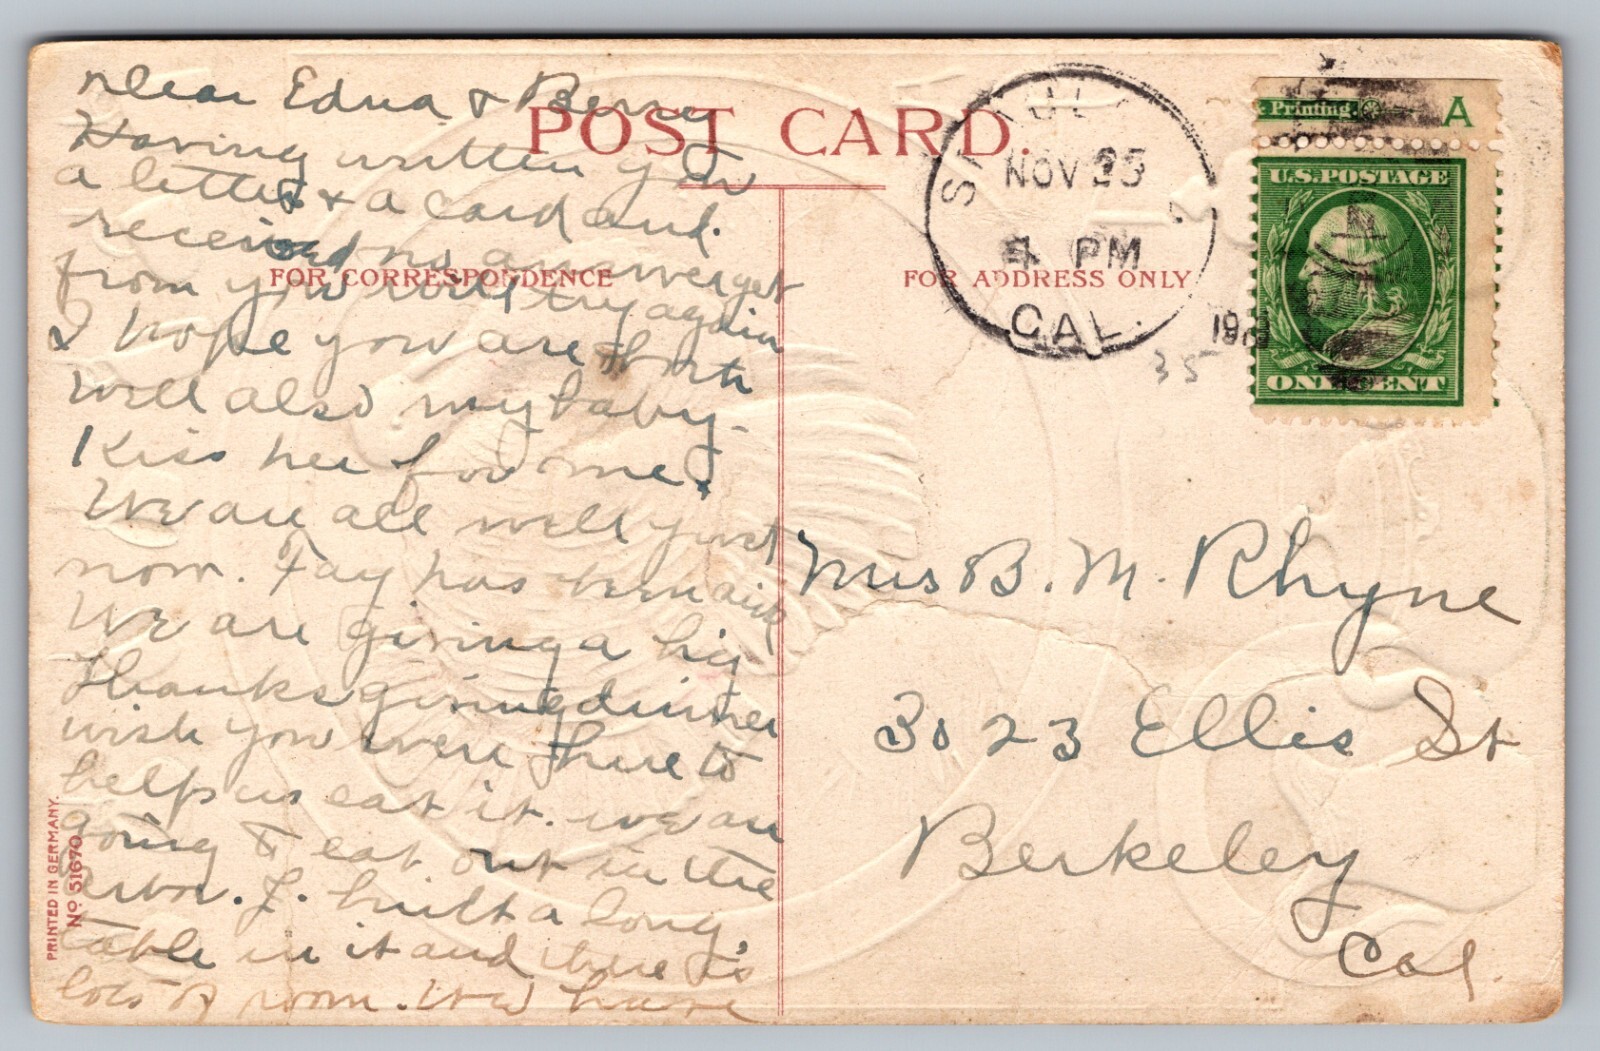 Dear Edna & Berry
POST CARD.
Having written you
a letter & a card and
received no answer yet
from you will try again
I hope you are both
well also my baby.
Kiss her for me.
We are all well just
now. Fay has been sick
We are giving a big
Thanksgiving dinner
wish you were here to
help us eat it. we are
going to eat out in the
arbor. J. built a long
table in it and there is
lots of room. We have
FOR CORRESPONDENCE
FOR ADDRESS ONLY
PRINTED IN GERMANY.
No. 51670
NOV 25
4 PM
CAL.
35
Printing. A
U.S. POSTAGE
ONE CENT
Mrs B. M. Rhyne
3023 Ellis St
Berkeley
Cal.